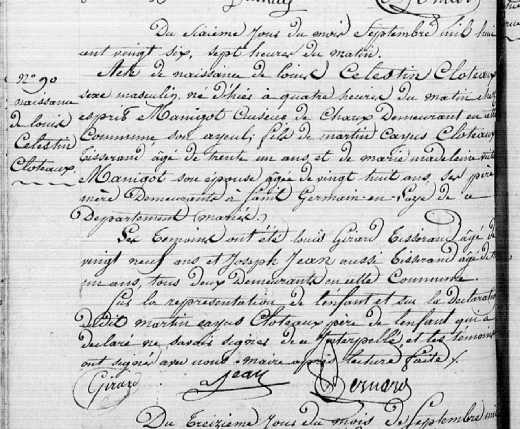 Du sixième Jour du mois Septembre mil huit
cent vingt six, sept heures du matin.
Acte de naissance de louis Celestin Cloteaux
sexe masculin, né d'hier à quatre heures du matin chez
esprit Manigot Cuiseur de Chaux Demeurant en cette
Commune son ayeul; fils de martin Cayus Cloteaux
Tisserand âgé de trente un ans, et de marie madeleine
Manigot son épouse agée de vingt huit ans, ses père
mère Demeurants à Saint Germain-en-Laye de ce
Departement (mariés.)
Les Temoins ont été louis Girard Tisserand âgé de
vingt neuf ans et Joseph Jean aussi Tisserand âgé de
un ans, tous deux Demeurants en cette Commune.
Sur la representation de l'enfant et sur la declaration
dudit martin Cayus Cloteaux père de l'enfant qui a
declaré ne savoir signer de ce Interpellé, et les témoins
ont signé avec nous maire après lecture faite.
Girard
Jean
Bernard
Nº 90
naissance
de louis
Celestin
Cloteaux.
Du Treizième Jour du mois de Septembre mil